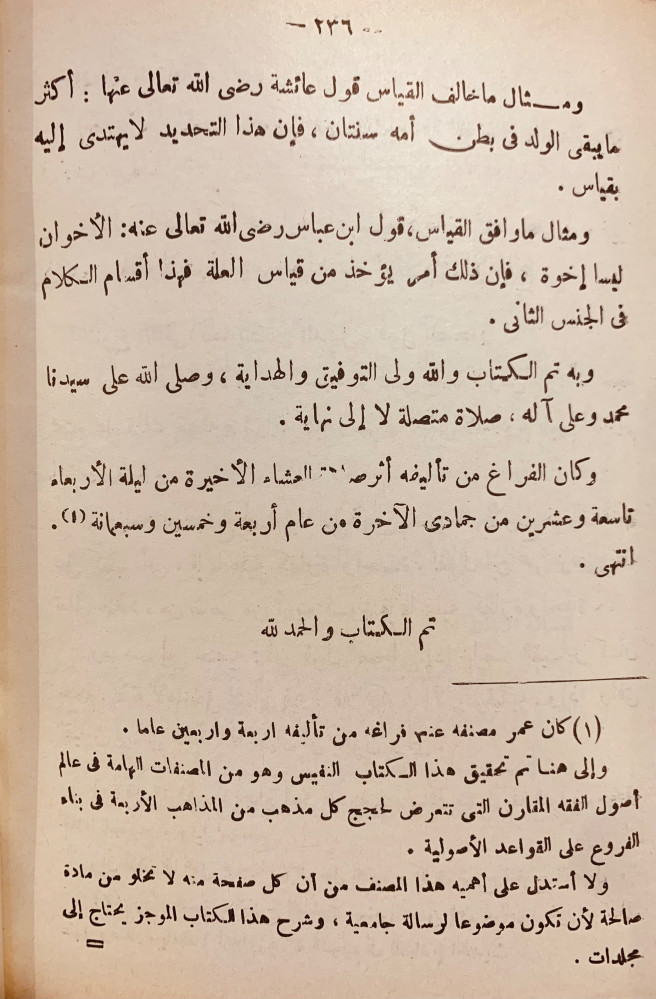 - ٢٣٦ -
ومثال ماخالف القياس قول عائشة رضى الله تعالى عنها : أكثر
مايبقى الولد فى بطن أمه سنتان ، فإن هذا التحديد لايهتدى إليه
بقياس .
ومثال ماوافق القياس، قول ابن عباس رضى الله تعالى عنه: الأخوان
ليسا إخوة ، فإن ذلك أمر يؤخذ من قياس العلة فهذا أقسام الكلام
فى الجنس الثانى .
وبه تم الكتاب والله ولى التوفيق والهداية ، وصلى الله على سيدنا
محمد وعلى آله ، صلاة متصلة لا إلى نهاية .
وكان الفراغ من تأليفه أثر صلاة العشاء الأخيرة من ليلة الأربعاء
تاسعة وعشرين من جمادى الآخرة من عام أربعة وخمسين وسبعمائة (١) .
انتهى .
تم الكتاب والحمد لله
(١) كان عمر مصنفه عند فراغه من تأليفه اربعة واربعين عاما .
وإلى هنا تم تحقيق هذا الكتاب النفيس وهو من المصنفات الهامة فى عالم
أصول الفقه المقارن التى تتعرض لحجج كل مذهب من المذاهب الأربعة فى بناء
الفروع على القواعد الأصولية .
ولا أستدل على أهميه هذا المصنف من أن كل صفحة منه لا تخلو من مادة
صالحة لأن تكون موضوعا لرسالة جامعية ، وشرح هذا الكتاب الموجز يحتاج إلى
مجلدات .